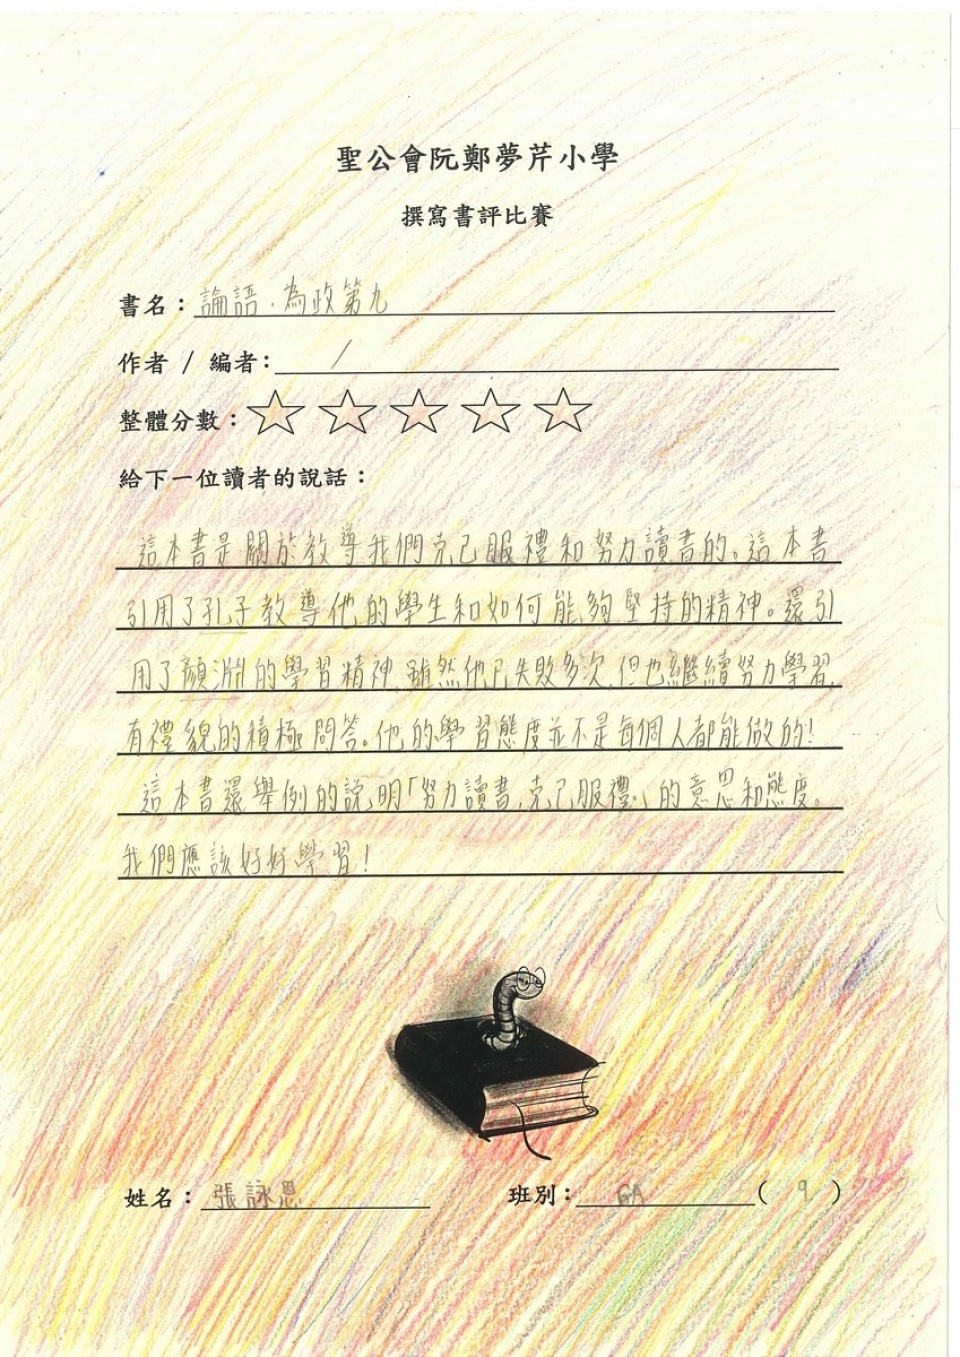 聖公會阮鄭夢芹小學
撰寫書評比賽
書名：論語．為政第九
作者 / 編者： /
整體分數：
給下一位讀者的說話：
這本書是關於教導我們克己服禮和努力讀書的。這本書
引用了孔子教導他的學生和如何能夠堅持的精神。還引
用了顏淵的學習精神，雖然他已失敗多次，但也繼續努力學習，
有禮貌的積極問答。他的學習態度並不是每個人都能做的！
這本書還舉例的說明「努力讀書，克己服禮。」的意思和態度。
我們應該好好學習！
姓名：張詠恩 班別：6A ( 9 )